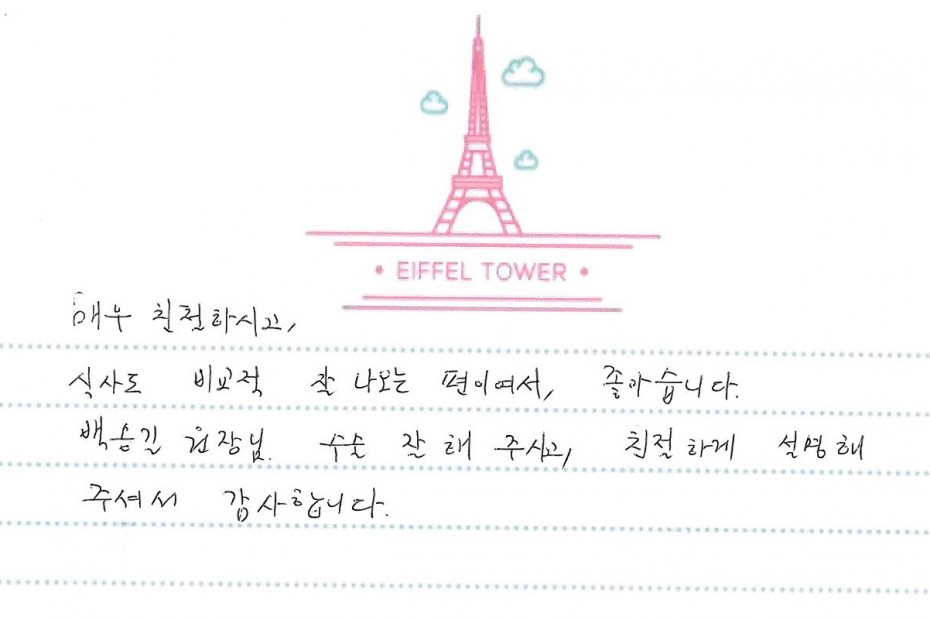 • EIFFEL TOWER •
매우 친절하시고,
식사도 비교적 잘 나오는 편이여서, 좋아습니다.
백승길 원장님. 수술 잘 해 주시고, 친절하게 설명해
주셔서 감사합니다.